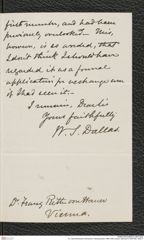 first number, and had been
previously overlooked. This,
however, is so worded, that
I don't think I should have
regarded it as a formal
application for exchange even
if I had seen it.—
I remain, Dear Sir
Yours faithfully
W. S. Dallas.
Dr Franz Ritter von Hauer
Vienna.